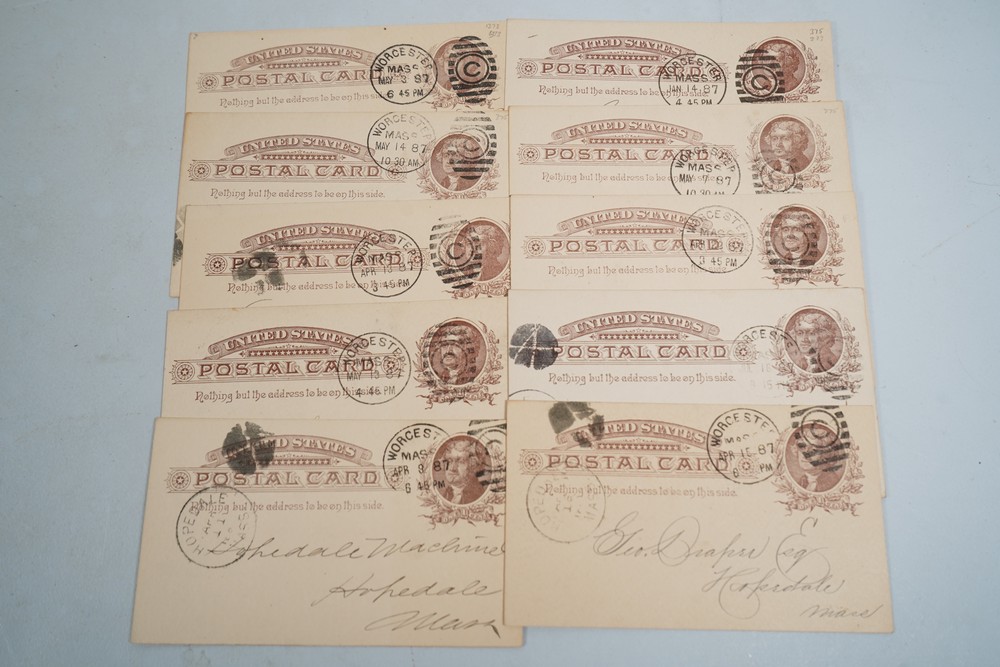 UNITED STATES
POSTAL CARD
Nothing but the address to be on this side.
WORCESTER
MASS
MAY 3 87
6 45 PM
C
UNITED STATES
POSTAL CARD
Nothing but the address to be on this side.
WORCESTER
MASS
MAY 14 87
10 30 AM
UNITED STATES
POSTAL CARD
Nothing but the address to be on this side.
WORCESTER
MASS
APR 13 87
3 45 PM
C
UNITED STATES
POSTAL CARD
Nothing but the address to be on this side.
WORCESTER
MASS
MAY 13 87
4 45 PM
UNITED STATES
POSTAL CARD
Nothing but the address to be on this side.
WORCESTER
MASS
APR 8 87
6 45 PM
HOPEDALE
MASS
Hopedale Machine
Hopedale
Mass
UNITED STATES
POSTAL CARD
Nothing but the address to be on this side.
WORCESTER
MASS
JAN 14 87
4 45 PM
C
UNITED STATES
POSTAL CARD
Nothing but the address to be on this side.
WORCESTER
MASS
MAY 7 87
10 30 AM
UNITED STATES
POSTAL CARD
Nothing but the address to be on this side.
WORCESTER
MASS
APR 87
3 45 PM
C
UNITED STATES
POSTAL CARD
Nothing but the address to be on this side.
WORCESTER
UNITED STATES
POSTAL CARD
Nothing but the address to be on this side.
WORCESTER
MASS
APR 15 87
PM
C
Geo. Draper Esq
Hopedale
Mass